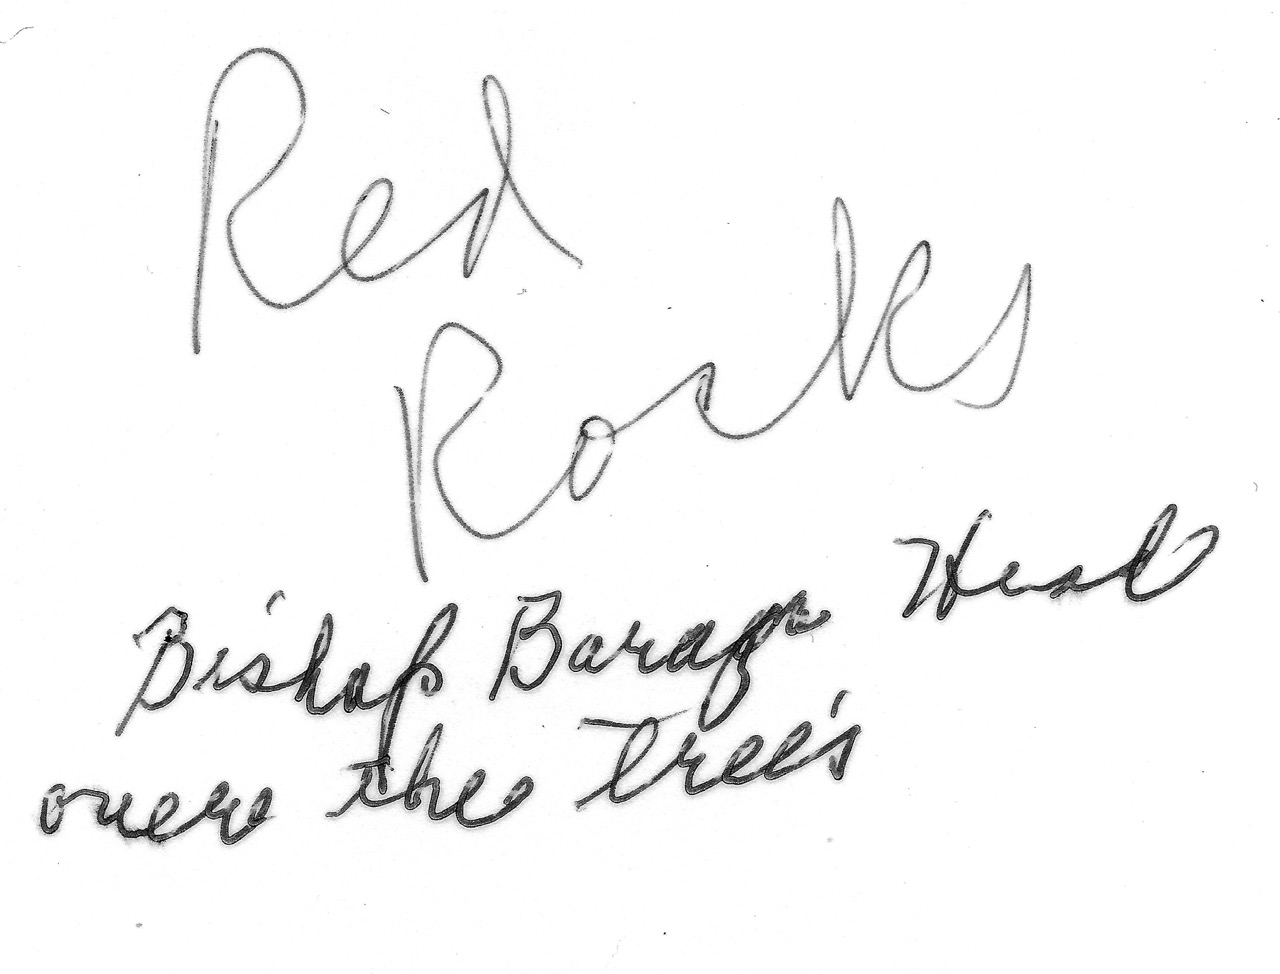 Red
Rocks
Bishop Baraga Head
over the Trees